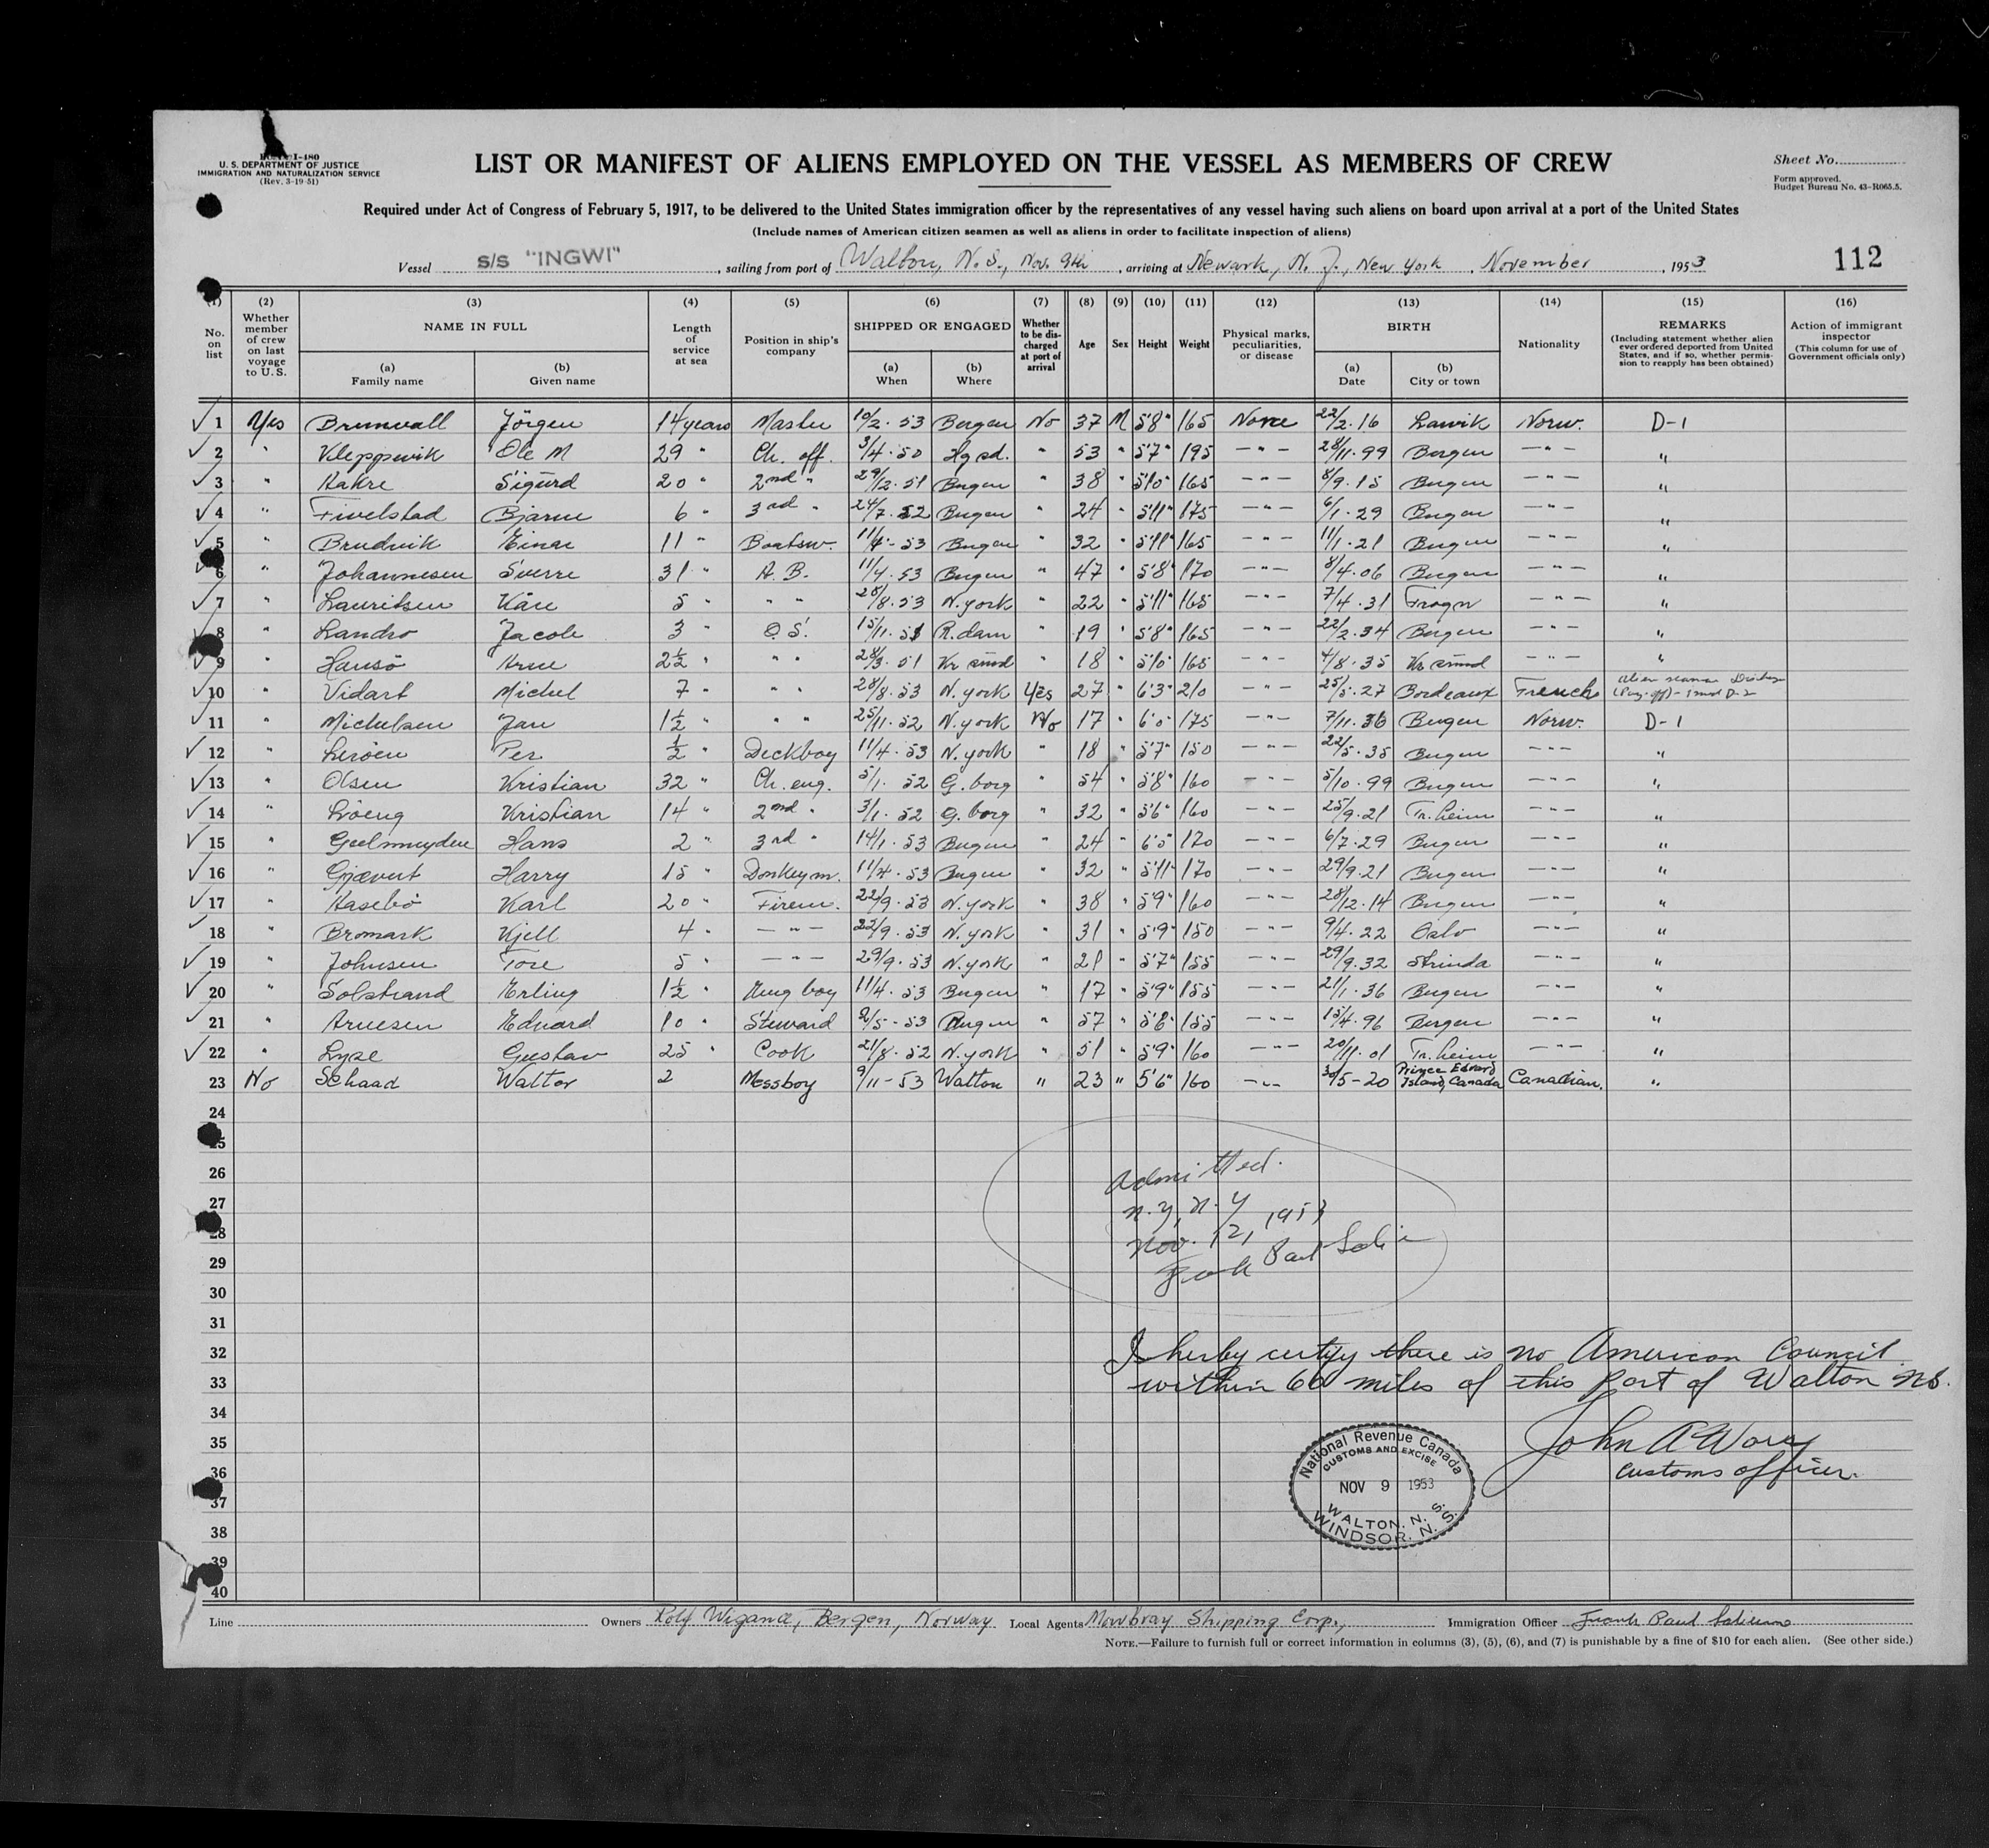 Form I-480
U. S. DEPARTMENT OF JUSTICE
IMMIGRATION AND NATURALIZATION SERVICE
(Rev. 3-19-51)
LIST OR MANIFEST OF ALIENS EMPLOYED ON THE VESSEL AS MEMBERS OF CREW
Sheet No.
Form approved.
Budget Bureau No. 43-R065.5.
Required under Act of Congress of February 5, 1917, to be delivered to the United States immigration officer by the representatives of any vessel having such aliens on board upon arrival at a port of the United States
(Include names of American citizen seamen as well as aliens in order to facilitate inspection of aliens)
Vessel S/S "INGWI", sailing from port of Walton, N.S., Nov. 9th, arriving at Newark, N.J., New York, November, 1953
112
(1) No. on list
(2) Whether member of crew on last voyage to U.S.
(3) NAME IN FULL (a) Family name (b) Given name
(4) Length of service at sea
(5) Position in ship's company
(6) SHIPPED OR ENGAGED (a) When (b) Where
(7) Whether to be discharged at port of arrival
(8) Age
(9) Sex
(10) Height
(11) Weight
(12) Physical marks, peculiarities, or disease
(13) BIRTH (a) Date (b) City or town
(14) Nationality
(15) REMARKS (Including statement whether alien ever ordered deported from United States, and if so, whether permission to reapply has been obtained)
(16) Action of immigrant inspector (This column for use of Government officials only)
1 Yes Brunvall Jörgen 14 years Master 10/2.53 Bergen No 37 M 5'8" 165 None 22/2.16 Larvik Norw. D-1
2 " Kleppevik Ole M 29 " Ch. off. 3/4.50 Hgsd. " 53 " 5'7" 195 -"- 28/11.99 Bergen -"- "
3 " Hahre Sigurd 20 " 2nd " 29/12.51 Bergen " 38 " 5'10" 165 -"- 8/9.15 Bergen -"- "
4 " Fivelstad Bjarne 6 " 3rd " 24/7.52 Bergen " 24 " 5'11" 175 -"- 6/1.29 Bergen -"- "
5 " Brudvik Einar 11 " Boatsw. 11/4-53 Bergen " 32 " 5'11" 165 -"- 11/1.21 Bergen -"- "
6 " Johannesen Sverre 31 " A.B. 11/4.53 Bergen " 47 " 5'8" 170 -"- 8/4.06 Bergen -"- "
7 " Lauritsen Kåre 5 " " " 28/8.53 N.york " 22 " 5'11" 165 -"- 7/4.31 Frogn -"- "
8 " Landro Jacob 3 " O.S. 15/11.51 R.dam " 19 " 5'8" 165 -"- 22/2.34 Bergen -"- "
9 " Hansö Arne 2½ " " " 28/3.51 Kr sund " 18 " 5'10" 165 -"- 4/8.35 Kr sund -"- "
10 " Vidart Michel 7 " " " 28/8.53 N.york Yes 27 " 6'3" 210 -"- 25/5.27 Bordeaux French
11 " Michelsen Jan 1½ " " " 25/11.52 N.york No 17 " 6'0" 175 -"- 7/11.36 Bergen Norw. D-1
12 " Leröen Per ½ " Deckboy 11/4.53 N.york " 18 " 5'7" 150 -"- 22/5.35 Bergen -"- "
13 " Olsen Kristian 32 " Ch. eng. 5/1.52 G.borg " 54 " 5'8" 160 -"- 5/10.99 Bergen -"- "
14 " Löeng Kristian 14 " 2nd " 3/1.52 G.borg " 32 " 5'6" 160 -"- 25/9.21 Tr.heim -"- "
15 " Geelmuyden Hans 2 " 3rd " 14/1.53 Bergen " 24 " 6'0" 170 -"- 6/7.29 Bergen -"- "
16 " Gjævert Harry 15 " Donkeym. 11/4.53 Bergen " 32 " 5'11" 170 -"- 29/9.21 Bergen -"- "
17 " Hasebö Karl 20 " Firem. 22/9.53 N.york " 38 " 5'9" 160 -"- 28/12.14 Bergen -"- "
18 " Bromark Kjell 4 " -"- 22/9.53 N.york " 31 " 5'9" 150 -"- 9/4.22 Oslo -"- "
19 " Johnsen Tore 5 " -"- 29/9.53 N.york " 21 " 5'7" 155 -"- 29/9.32 Strinda -"- "
20 " Solstrand Erling 1½ " Eng boy 11/4.53 Bergen " 17 " 5'9" 155 -"- 21/1.36 Bergen -"- "
21 " Arnesen Edvard 10 " Steward 2/5-53 Bergen " 57 " 5'8" 155 -"- 15/4.96 Bergen -"- "
22 " Lyse Gustav 25 " Cook 21/8.52 N.york " 51 " 5'9" 160 -"- 20/11.01 Tr.heim -"- "
23 No Schaad Walter 2 Messboy 9/11-53 Walton " 23 " 5'6" 160 -"- 30/5-20 Prince Edward Island, Canada Canadian. "
24
25
26
27
28
29
30
31
32
33
34
35
36
37
38
39
40
Admitted.
N.Y, N.Y
Nov. 12, 1953
I herby certify there is no American Council
within 60 miles of this Port of Walton NS.
John A
Customs officer.
National Revenue Canada
CUSTOMS AND EXCISE
NOV 9 1953
WALTON, N. S.
WINDSOR, N. S.
Line Owners Rolf Wigand, Bergen, Norway Local Agents Mowbray Shipping Corp., Immigration Officer Frank Paul
NOTE.—Failure to furnish full or correct information in columns (3), (5), (6), and (7) is punishable by a fine of $10 for each alien. (See other side.)